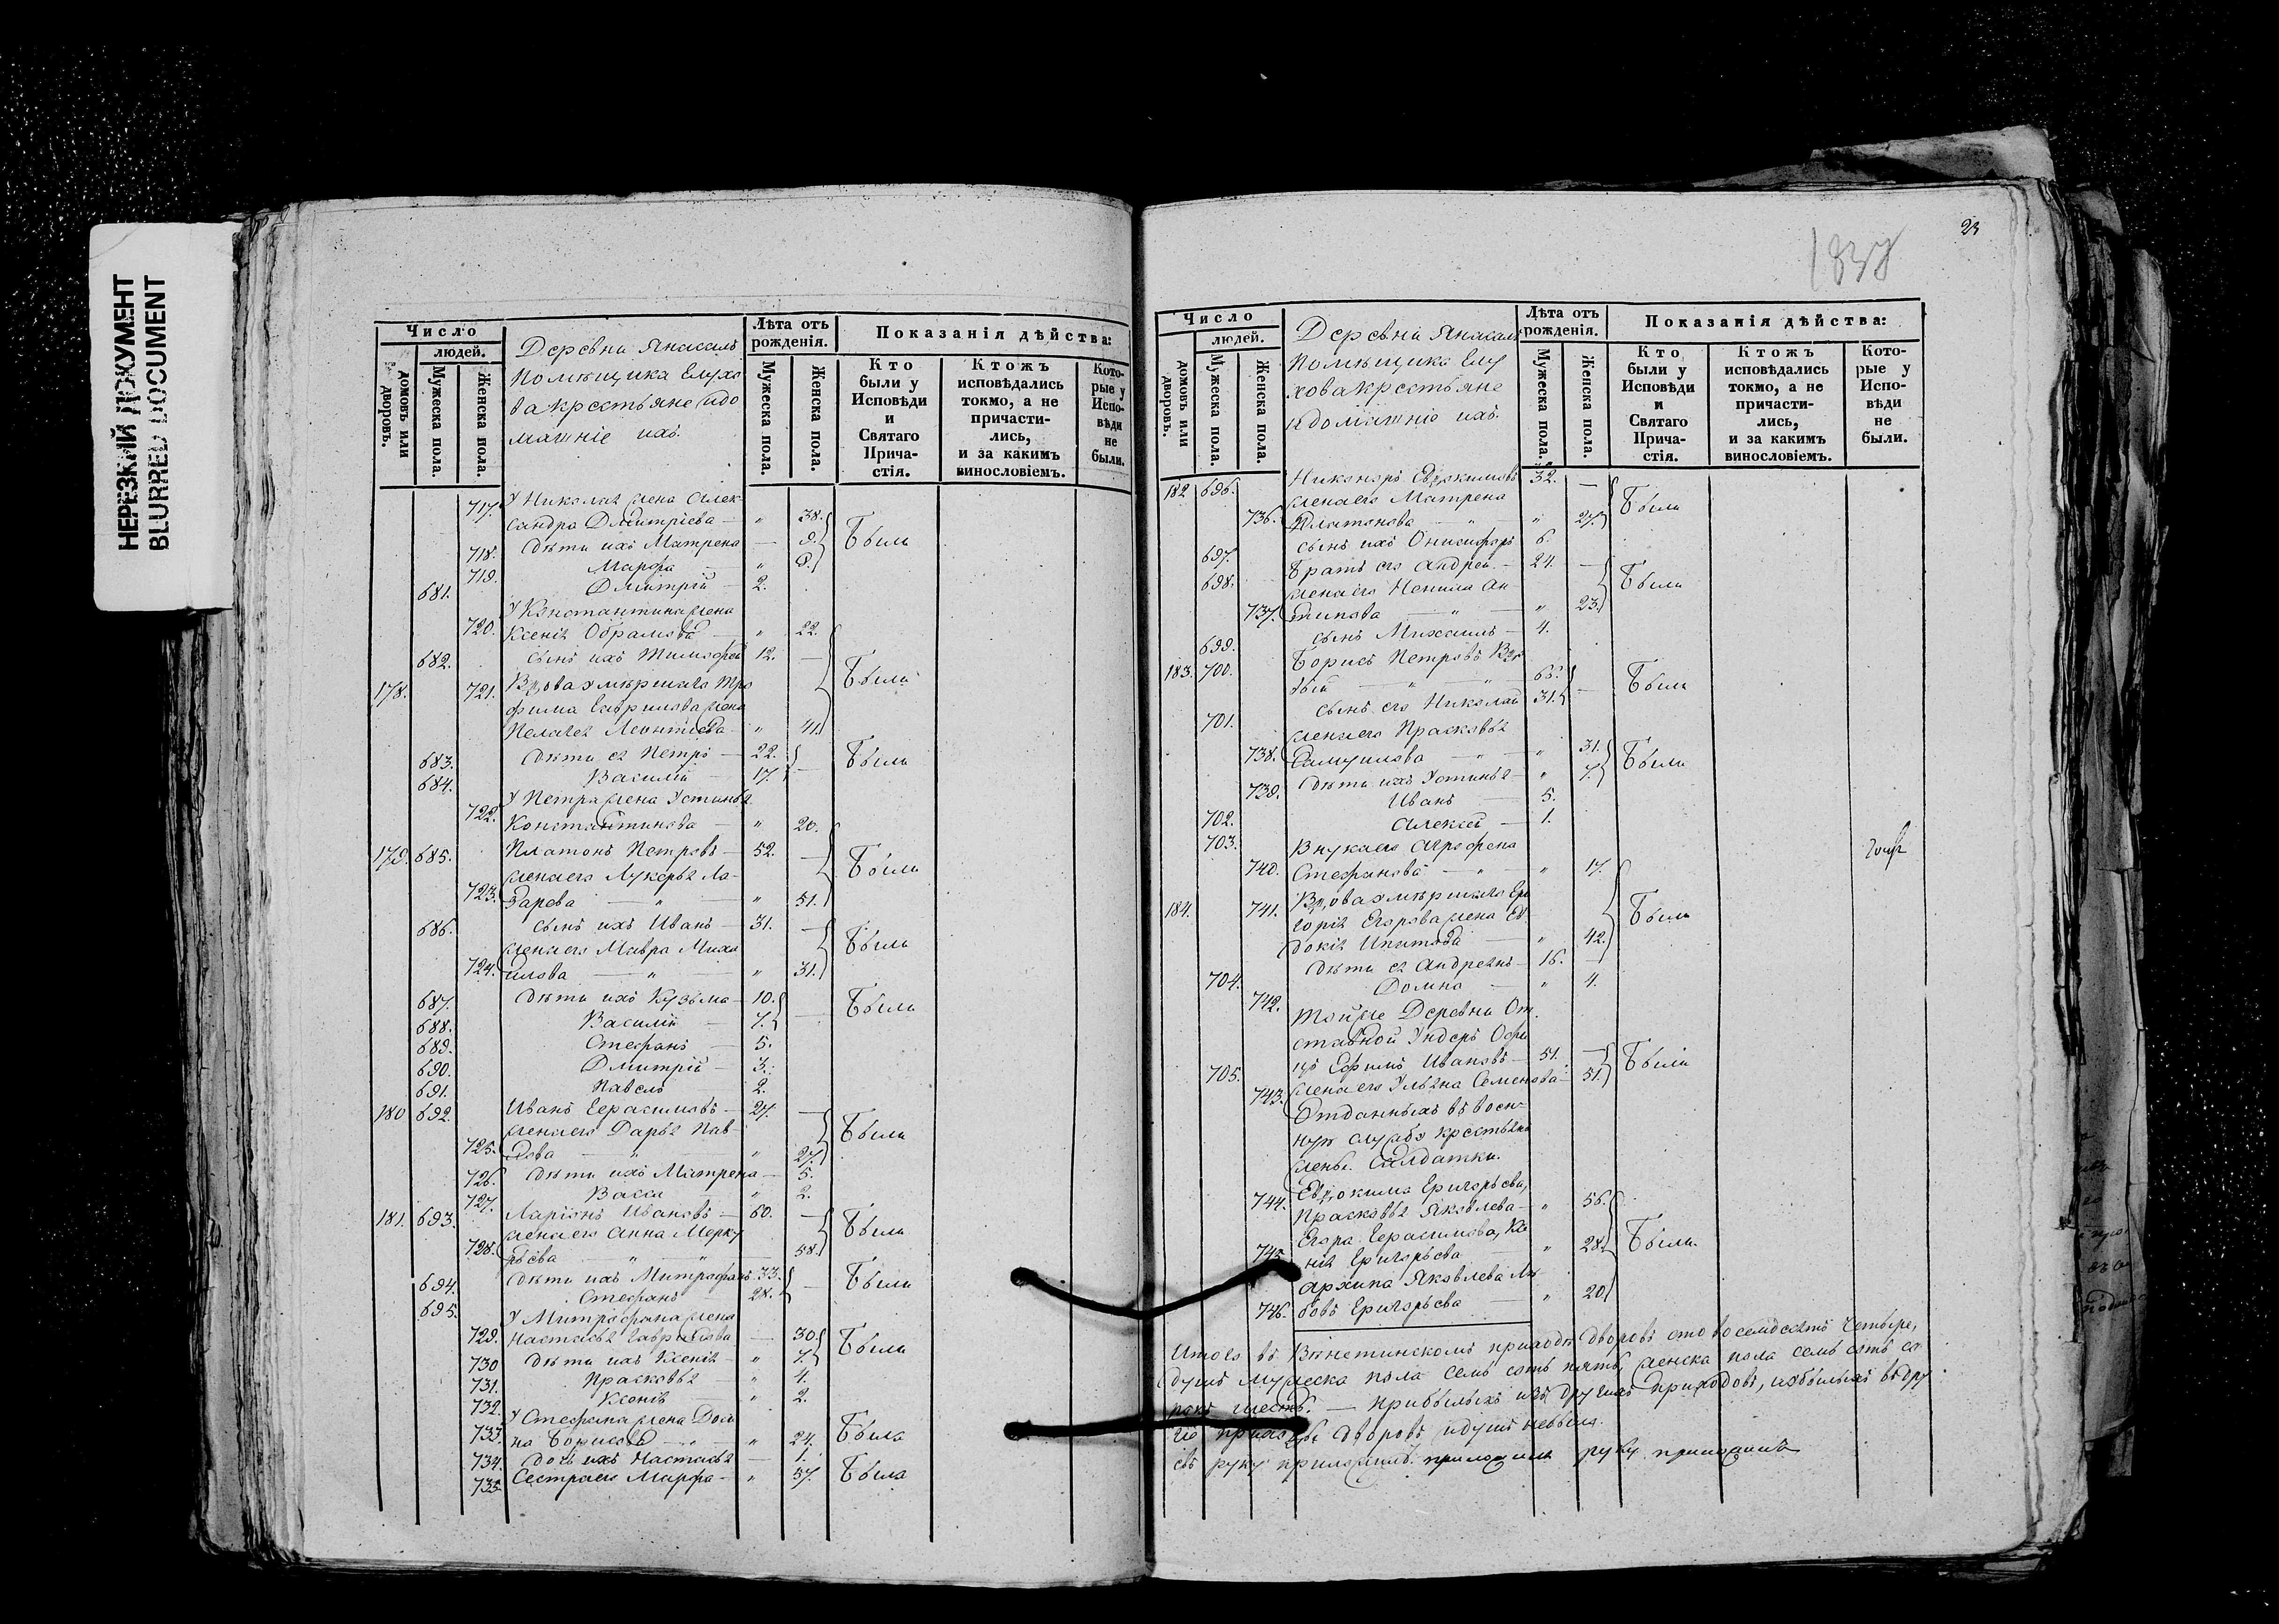 НЕРЕЗКИЙ ДОКУМЕНТ
BLURRED DOCUMENT
Число
людей.
домовъ или дворовъ.
Мужеска пола.
Женска пола.
Деревни
помѣщика Елухо
ва крестьяне и до
машніе ихъ.
Лѣта отъ
рожденія.
Мужеска пола.
Женска пола.
Показанія дѣйства:
Кто
были у
Исповѣди
и
Святаго
Прича-
стія.
Ктожъ
исповѣдались
токмо, а не
причасти-
лись,
и за какимъ
винословіемъ.
Кото-
рые у
Испо-
вѣди
не
были.
У Николая жена Алек-
717. сандра Дмитріева — " 38.
718. Дѣти ихъ Матрена — 9. Были
719. Марфа — " 8.
681. Дмитрій — 2.
У Константина жена
720. Ксенія Обрамова — " 22.
682. сынъ ихъ Тимофей 12. — Были
178. 721. Вдова умершаго Тро
фима Гаврилова жена
Пелагея Леонтіева — " 41.
683. Дѣти ея Петръ — 22. Были
684. Василій — 17. —
У Петра жена Устинья
722. Константинова — " 20.
179. 685. Платонъ Петровъ — 52. — Были
жена его Лукерья Ла-
723. зарева — " — " 51.
686. сынъ ихъ Иванъ — 31. —
жена его Мавра Миха Были
724. илова — " — " 31.
687. Дѣти ихъ Кузьма — 10. Были
688. Василій — 7. —
689. Стефанъ — 5.
690. Дмитрій — 3.
691. Павелъ 2.
180 692. Иванъ Герасимовъ — 27. —
жена его Дарья Пав- Были
725. лова — " — " 27.
726. Дѣти ихъ Матрена — 5.
727. Васса — " 2.
181. 693. Ларіонъ Ивановъ — 60. —
жена его Анна Мерку Были
728. рьева " " — 58.
694. Дѣти ихъ Митрофанъ 33. Были
695. Стефанъ 28. —
У Митрофана жена
729. Настасья Гаврилова — 30. Были
730 Дѣти ихъ Ксенія — " 7.
731. Прасковья — " 4.
732. Ксенія — " 2.
У Стефана жена Дом
733. на Борисова — " 24. Была
734. Дочь ихъ Настасья — 1.
735 Сестра его Марфа — " 57. Была
23
1837
Число
людей.
домовъ или дворовъ.
Мужеска пола.
Женска пола.
Деревни
помѣщика Елу
хова крестьяне
и домашніе ихъ.
Лѣта отъ
рожденія.
Мужеска пола.
Женска пола.
Показанія дѣйства:
Кто
были у
Исповѣди
и
Святаго
Прича-
стія.
Ктожъ
исповѣдались
токмо, а не
причасти-
лись,
и за какимъ
винословіемъ.
Кото-
рые у
Испо-
вѣди
не
были.
182 696. Никоноръ Евдокимовъ 32. —
жена его Матрена Были
736. Платонова " — " 27.
697. сынъ ихъ Онисифоръ 6.
698. Братъ его Андрей — 24. —
жена его Ненила Ан Были
737. типова — " — " 23.
699. сынъ Михаилъ — 4.
183. 700. Борисъ Петровъ Вдо
вый — " — " — 66. Были
701. сынъ его Николай 31. —
жена его Прасковья
738. Самуилова — " — " 31. Были
739. Дѣти ихъ Устинья — " 7.
702. Иванъ — 5.
703. Алексей — 1.
Внука его Агрофена
740. Стефанова — " — " 17.
184. 741. Вдова умершаго Гри
горія Егорова жена Ев Были
докія Ипатова — " 42.
704. Дѣти ея Андреянъ — 16. —
742. Домна — " 4.
Той же Деревни От
ставной Ундеръ Офи
705. цръ Ефимъ Ивановъ — 51. — Были
743. жена его Ульяна Семенова — 51.
Отданныхъ въ воен-
ную службу крестьянъ
жены Салдатки.
744. Евдокима Григорьева,
Прасковья Яковлева — " 56.
Егора Герасимова, Ксе
745. нія Григорьева " 28. Были
Архипа Яковлева Лю
746. бовь Григорьева — " 20
Итого въ приходѣ дворовъ сто восемдесятъ четыре,
душъ мужеска пола семь сотъ пять, женска пола семь сотъ со
рокъ шесть. — Прибылыхъ изъ другихъ приходовъ, и убылыхъ въ дру
гіе приходы дворовъ и душъ небыло.
руку приложилъ руку приложилъ